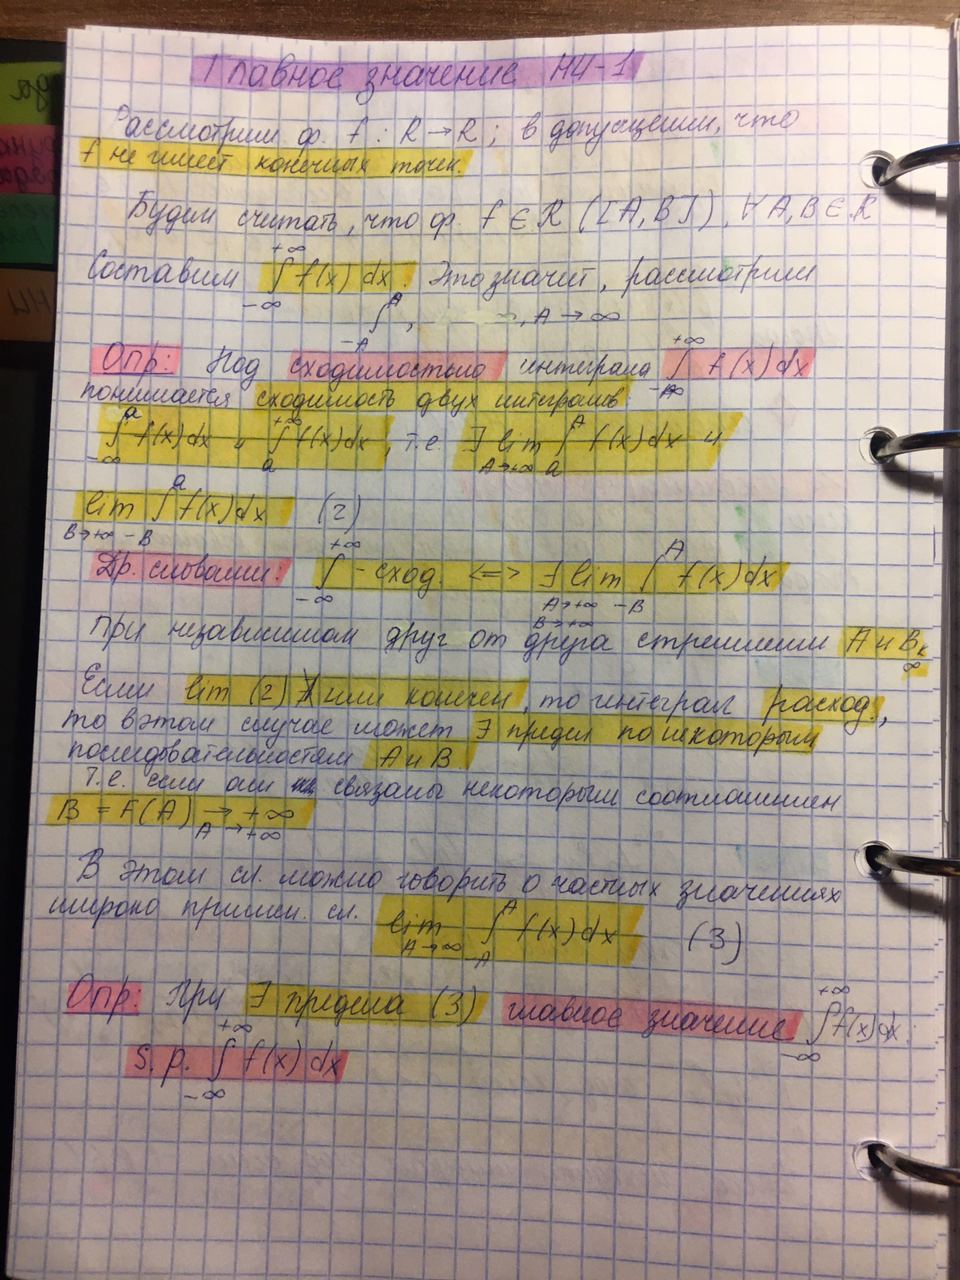 Главное значение НИ-1
Рассмотрим ф. f : R → R; в допущении, что
f не имеет конечных точек.
Будем считать, что ф. f ∈ R ([A, B]), ∀ A, B ∈ R
Составим ∫_{-∞}^{+∞} f(x) dx. Это значит, рассмотрим
∫_{-A}^{A}, A → ∞
Опр: Под сходимостью интеграла ∫_{-∞}^{+∞} f(x) dx
понимается сходимость двух интегралов
∫_{-∞}^{a} f(x) dx и ∫_{a}^{+∞} f(x) dx, т.е. ∃ lim_{A→+∞} ∫_{a}^{A} f(x) dx и
lim_{B→+∞} ∫_{-B}^{a} f(x) dx (2)
Др. словами: ∫_{-∞}^{+∞} - сход. <=> ∃ lim_{A→+∞ B→+∞} ∫_{-B}^{A} f(x) dx
при независимом друг от друга стремлении A и B к ∞
Если lim (2) ∄ или конечен, то интеграл расход.,
то в этом случае может ∃ предел по некоторым
последовательностям A и B.
Т.е. если они связаны некоторым соотношением
B = F(A) →_{A→+∞} +∞
В этом сл. можно говорить о частных значениях
широко примен. сл. lim_{A→∞} ∫_{-A}^{A} f(x) dx (3)
Опр: При ∃ предела (3) главное значение ∫_{-∞}^{+∞} f(x) dx.
S. p. ∫_{-∞}^{+∞} f(x) dx